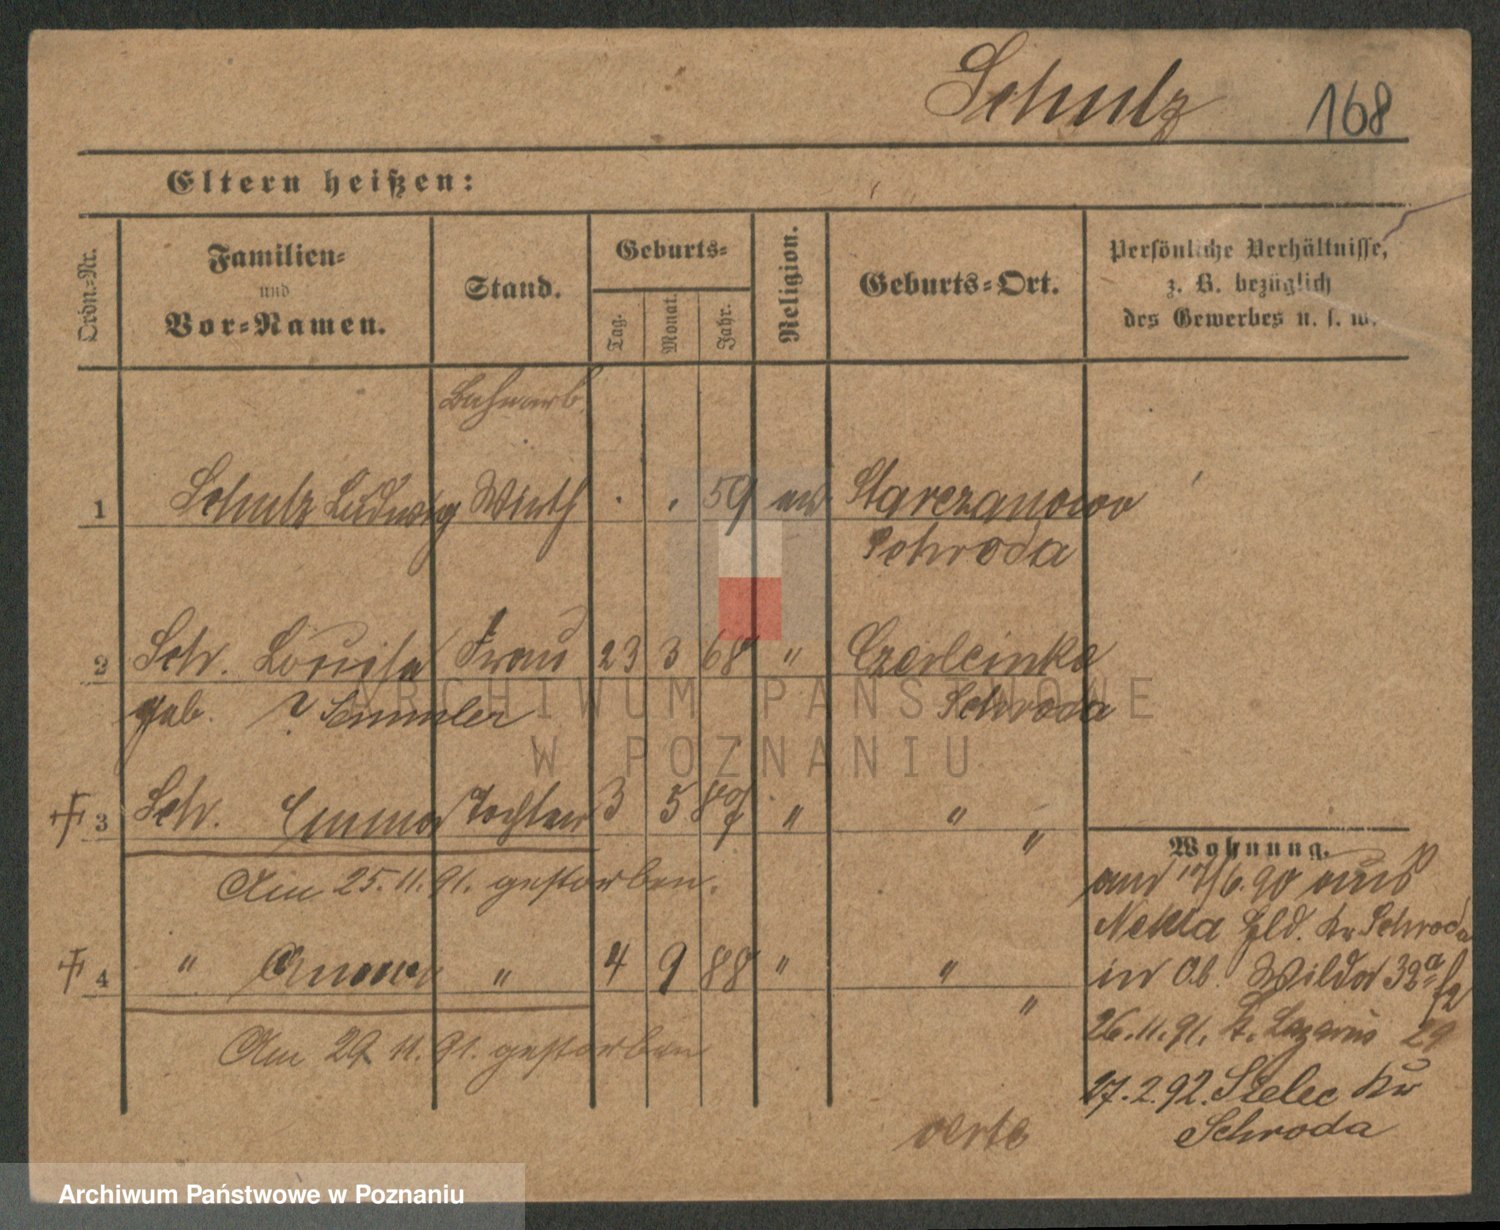 Schulz 168
Eltern heißen:
Ordn.-Nr. Familien- und Vor-Namen. Stand. Geburts- Tag. Monat. Jahr. Religion. Geburts-Ort. Persönliche Verhältnisse, z. B. bezüglich des Gewerbes u. s. w.
Bahnarb.
1 Schulz Ludwig Wirth . . 59 ev Starczanowo
Schroda
2 Sch. Louisa Frau 23 3 68 " Czerleinko
geb. ? Semmler Schroda
3 Sch. Emma Tochter 3 5 87 " " "
Wohnung.
Am 25. 11. 91. gestorben. 17/6. 90 aus
Nekla Hld. Kr Schroda
4 " Anna " 4 9 88 " " "
in Ob. Wilda 32a
Am 29 11. 91. gestorben 26. 11. 91. St. Lazarus 29
27. 2. 92. Szelec Kr
Schroda
ARCHIWUM PAŃSTWOWE
W POZNANIU
Archiwum Państwowe w Poznaniu